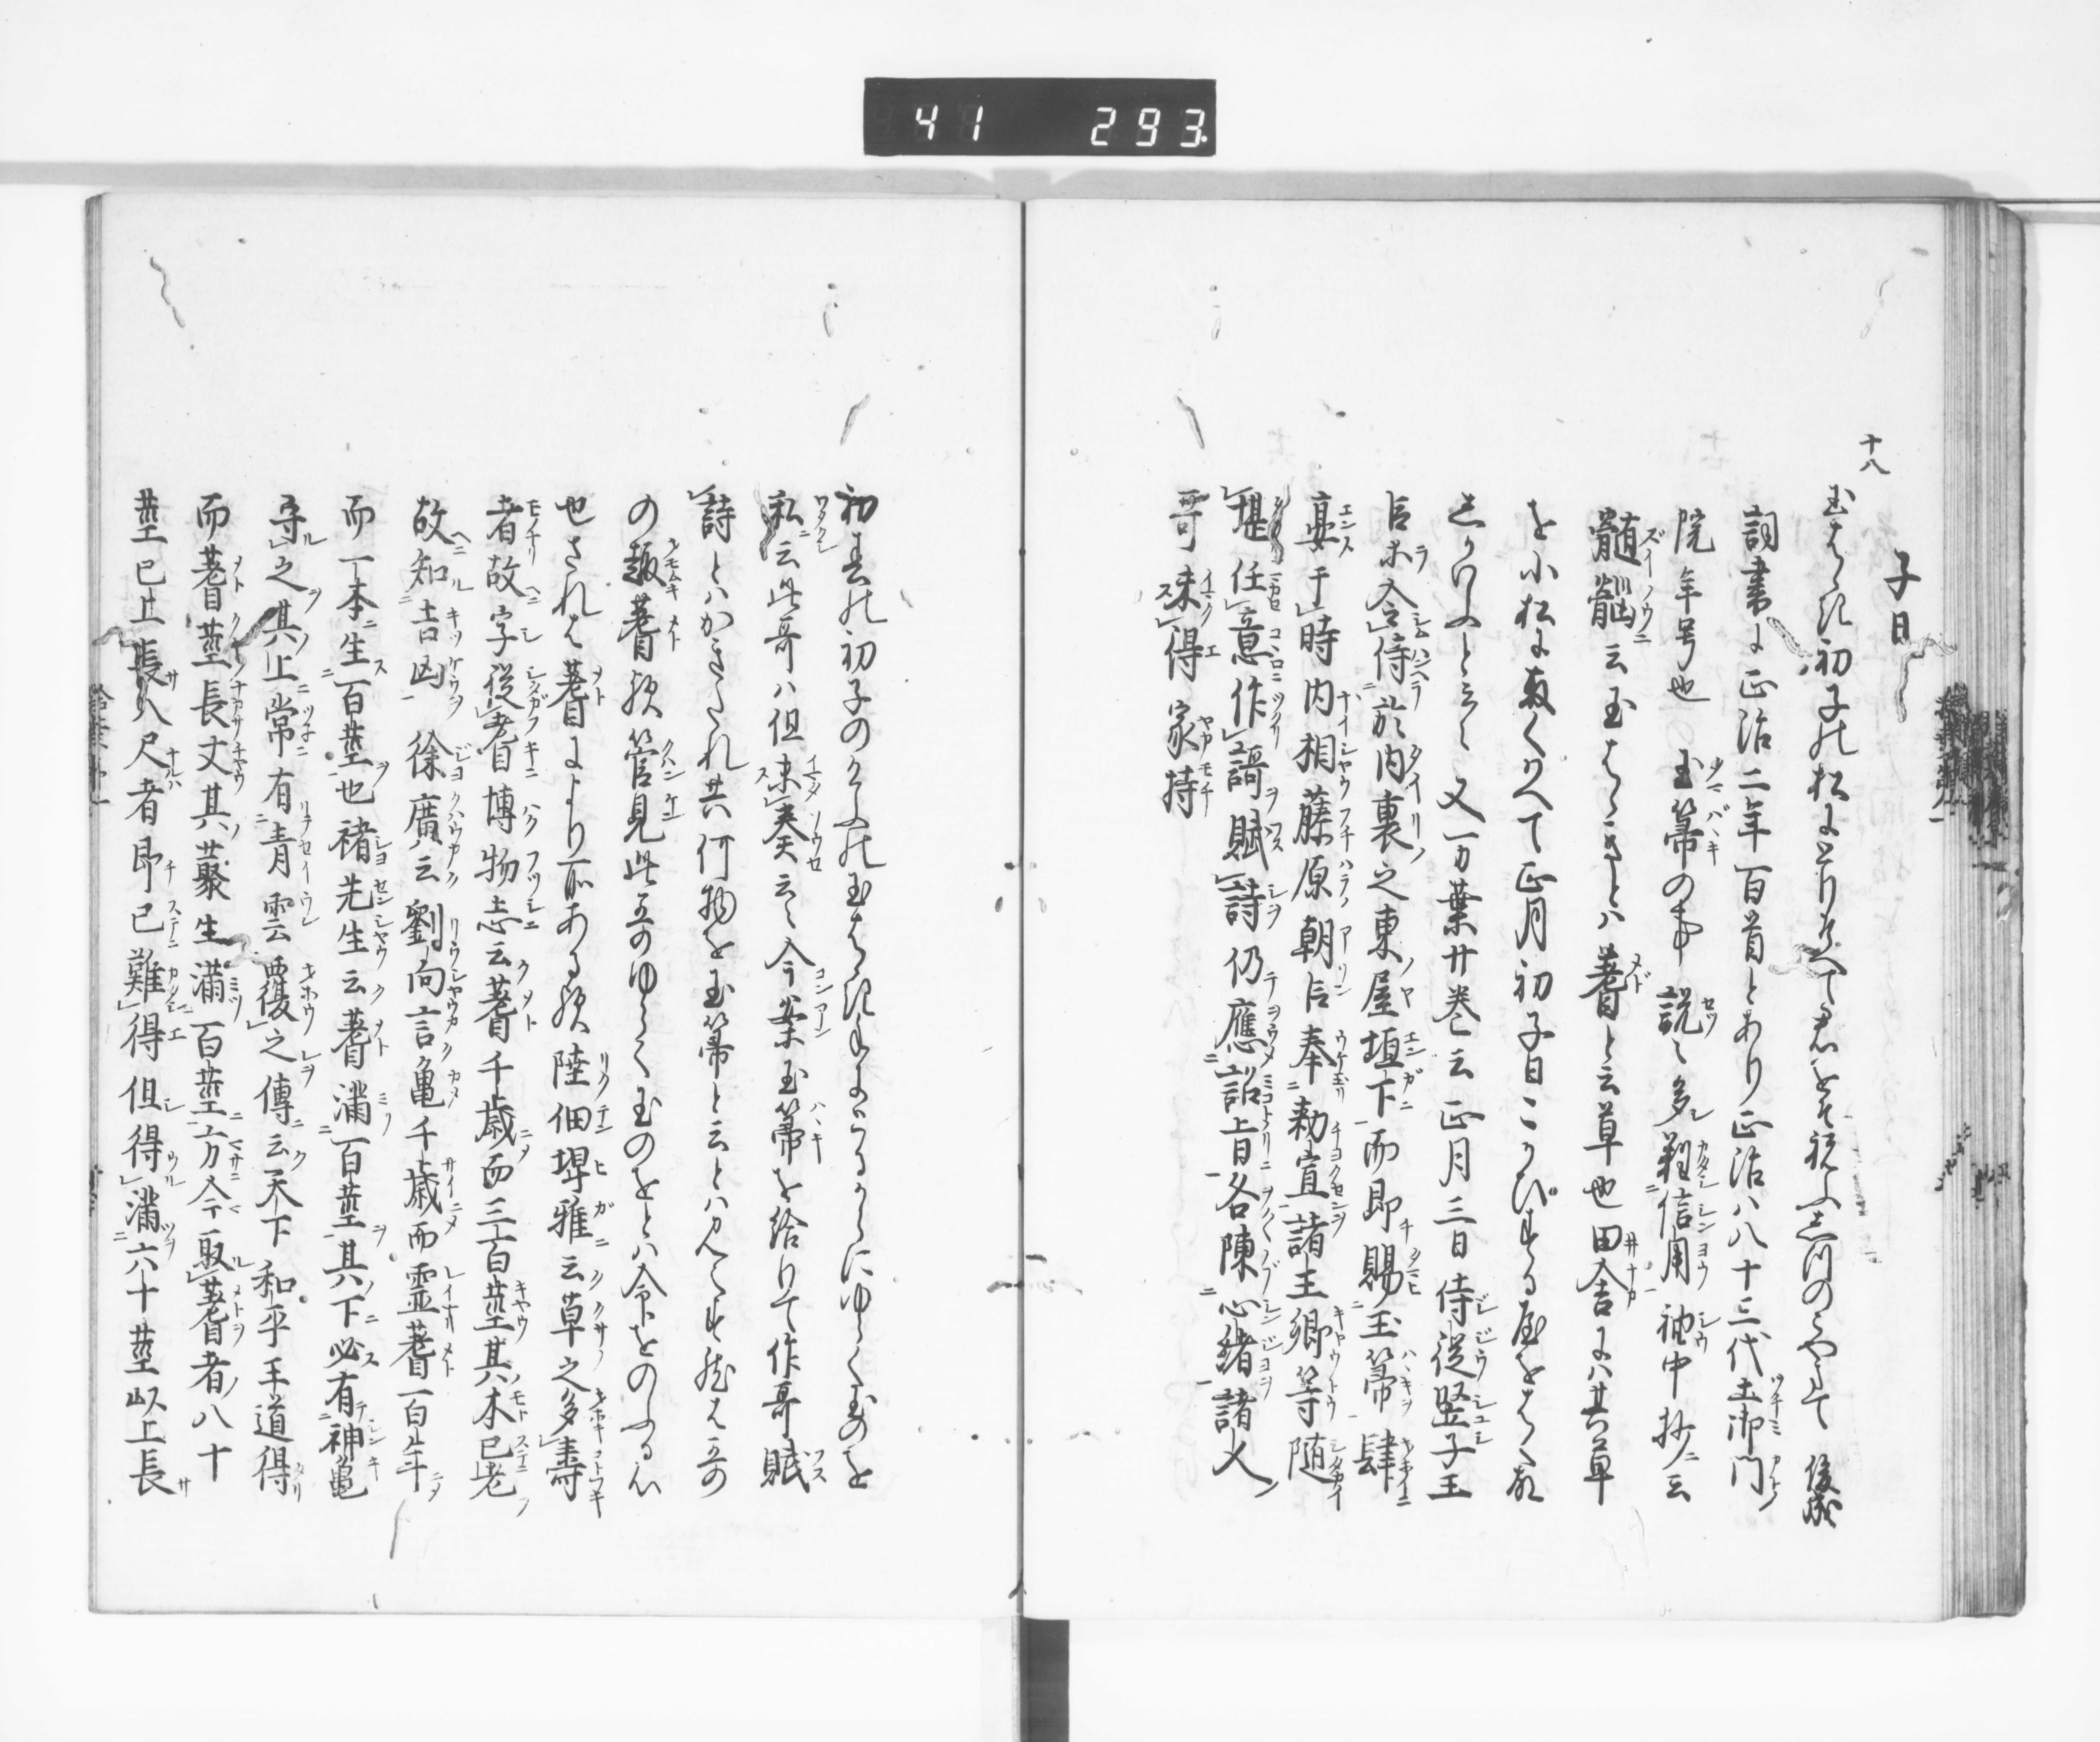 41 293
子日
十八
玉はゝき初子の松にとりそへて君をそ祝ふしつのこやまて 俊成
詞書に正治二年百首とあり正治ハ八十三代土御門
院年号也 玉箒の事説〻多難信用袖中抄ニ云
髄𦜝云玉はゝきとハ蓍と云草也田舎にハ其草
を小松に取くはへて正月初子日こかひする屋をはく
といふと云〻 又万葉廿巻云正月三日侍従竪子王
臣ホ令侍於内裏之東屋垣下而即賜玉箒肆
宴于時内相藤原朝臣奉勅宣諸王卿等随
堪任意作謌賦詩仍應詔旨各陳心緒諸人
哥未得家持
初春の初子のけふの玉はゝき手にとるからにゆらく玉のを
私云此哥ハ但未奏云〻今案玉箒を給りて作哥賦
詩とハかきたれ共何物を玉箒と云とハ
の趣蓍歟管見此哥のゆらく玉のをとハ命をのふる心
也されは蓍により所ある歟陸佃埤雅云草之多壽
者故字従耆博物志云蓍千歳而三百莖其本已老
故知吉凶 徐廣云劉向言亀千歳而霊蓍百年
而一本生百莖也褚先生云蓍満百莖其下必有神亀
守之其上常有青雲覆之傳云天下和平王道得
而蓍莖長丈其叢生満百莖方今取蓍者八十
莖已上長八尺者即已難得但得満六十莖以上長